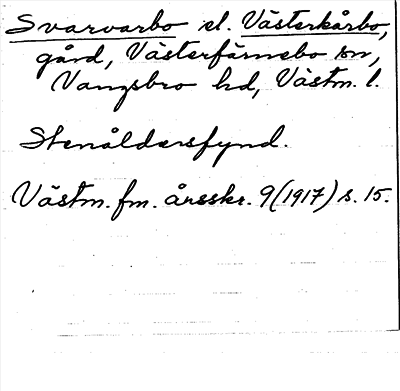 Svarvarbo el. Västerkårbo,
gård, Västerfärnebo sn,
Vangsbro hd, Västm. l.
Stenåldersfynd.
Västm. fm. årsskr. 9 (1917) s. 15.